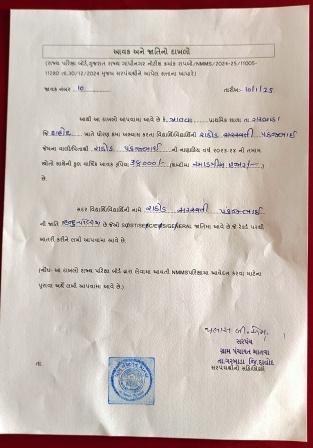 આવક અને જાતિનો દાખલો
(રાજ્ય પરીક્ષા બોર્ડ,ગુજરાત રાજ્ય ગાંધીનગર નોટીફ ક્રમાંક રાપબો/NMMS/2024-25/11005-
11280 તા.30/12/2024 મુજબ સરપંચશ્રીને આપેલ સત્તાના આધારે)
જાવક નંબર :10 તારીખ:- 10/1/25
આથી આ દાખલો આપવામાં આવે છે કે, પ્રાથમિક શાળા તા
જિ દાહોદ ખાતે ધોરણ ૮મા અભ્યાસ કરતા વિદ્યાર્થી/વિદ્યાર્થીની રાઠોડ સરસ્વતી પંકજભાઈ
જેમના વાલી/પિતાશ્રી રાઠોડ પંકજભાઈ ની નાણાકિય વર્ષ ૨૦૨૩-૨૪ ની તમામ
સ્ત્રોતો સાથેની કુલ વાર્ષિક આવક રૂપિયા /- (શબ્દોમાં હજાર/-)
છે.
સદર વિદ્યાર્થી/વિદ્યાર્થીનીનું નામે રાઠોડ સરસ્વતી પંકજભાઈ
ની જાતિ છે જેઓ જાતિમાં આવે છે જે રેકર્ડ પરથી
ખાતરી કરીને લખી આપવામાં આવે છે.
(નોંધ: આ દાખલો રાજ્ય પરીક્ષા બોર્ડ દ્વારા લેવામાં આવતી NMMSપરિક્ષામાં આવેદન કરવા માટેના
પુરાવા અર્થે લખી આપવામાં આવે છે.)
સરપંચ
ગ્રામ પંચાયત
તા.ગરબાડા જિ.દાહોદ
તા. સરપંચશ્રીની સહિ/સિક્કો